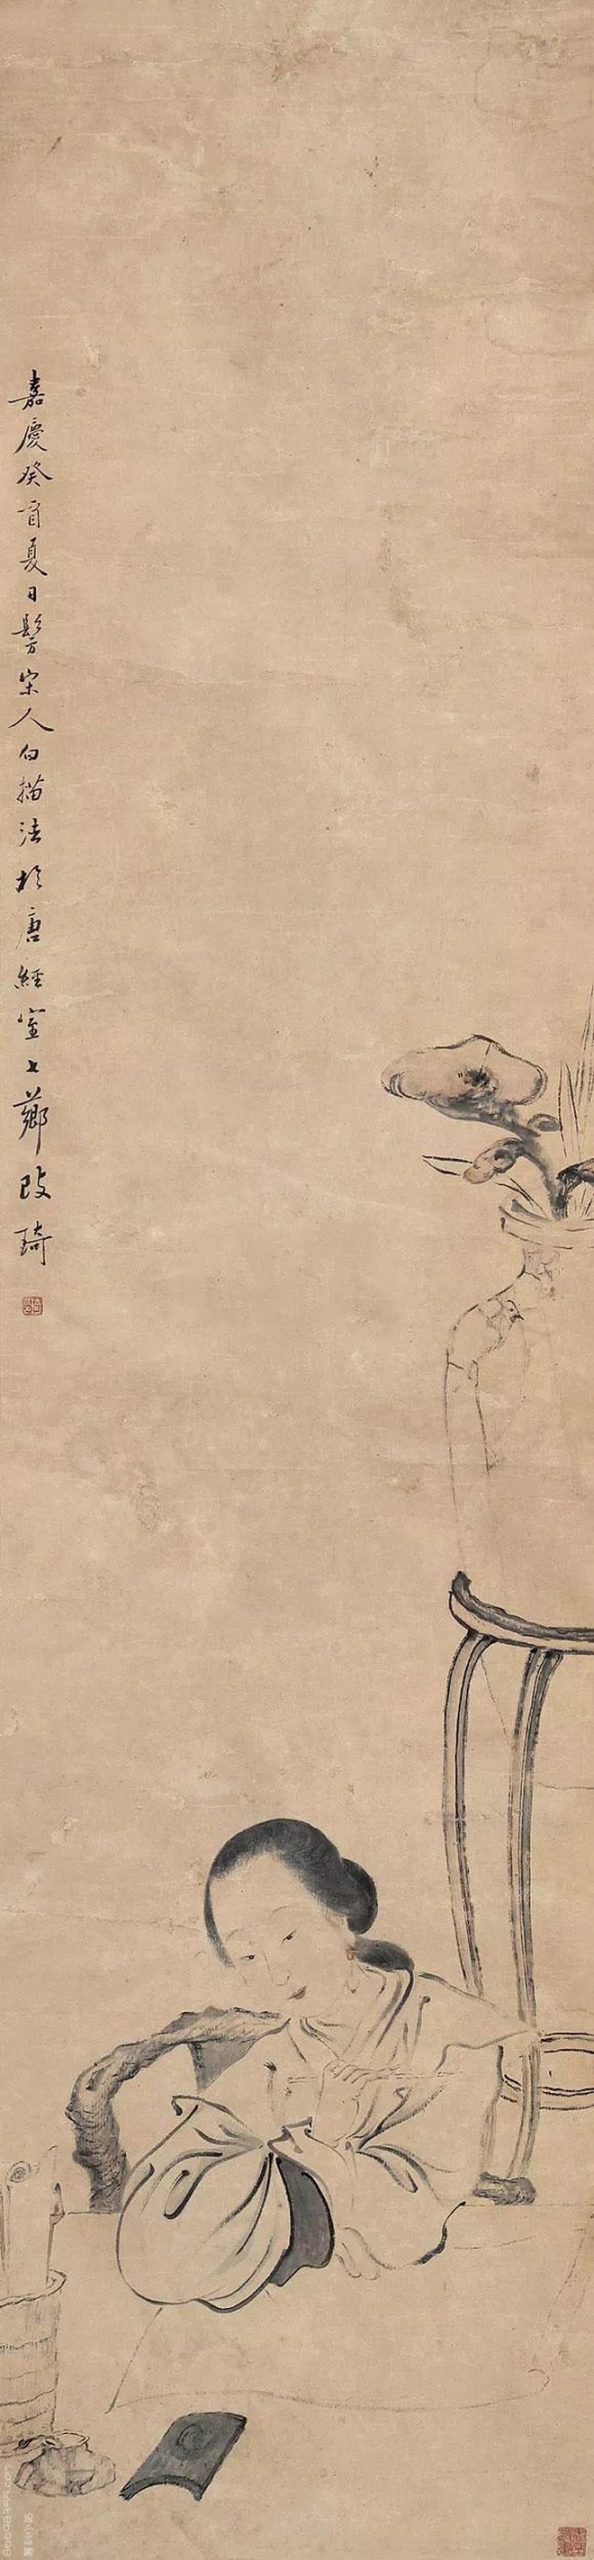 嘉慶癸酉夏日髣宋人白描法於唐經室七薌改琦